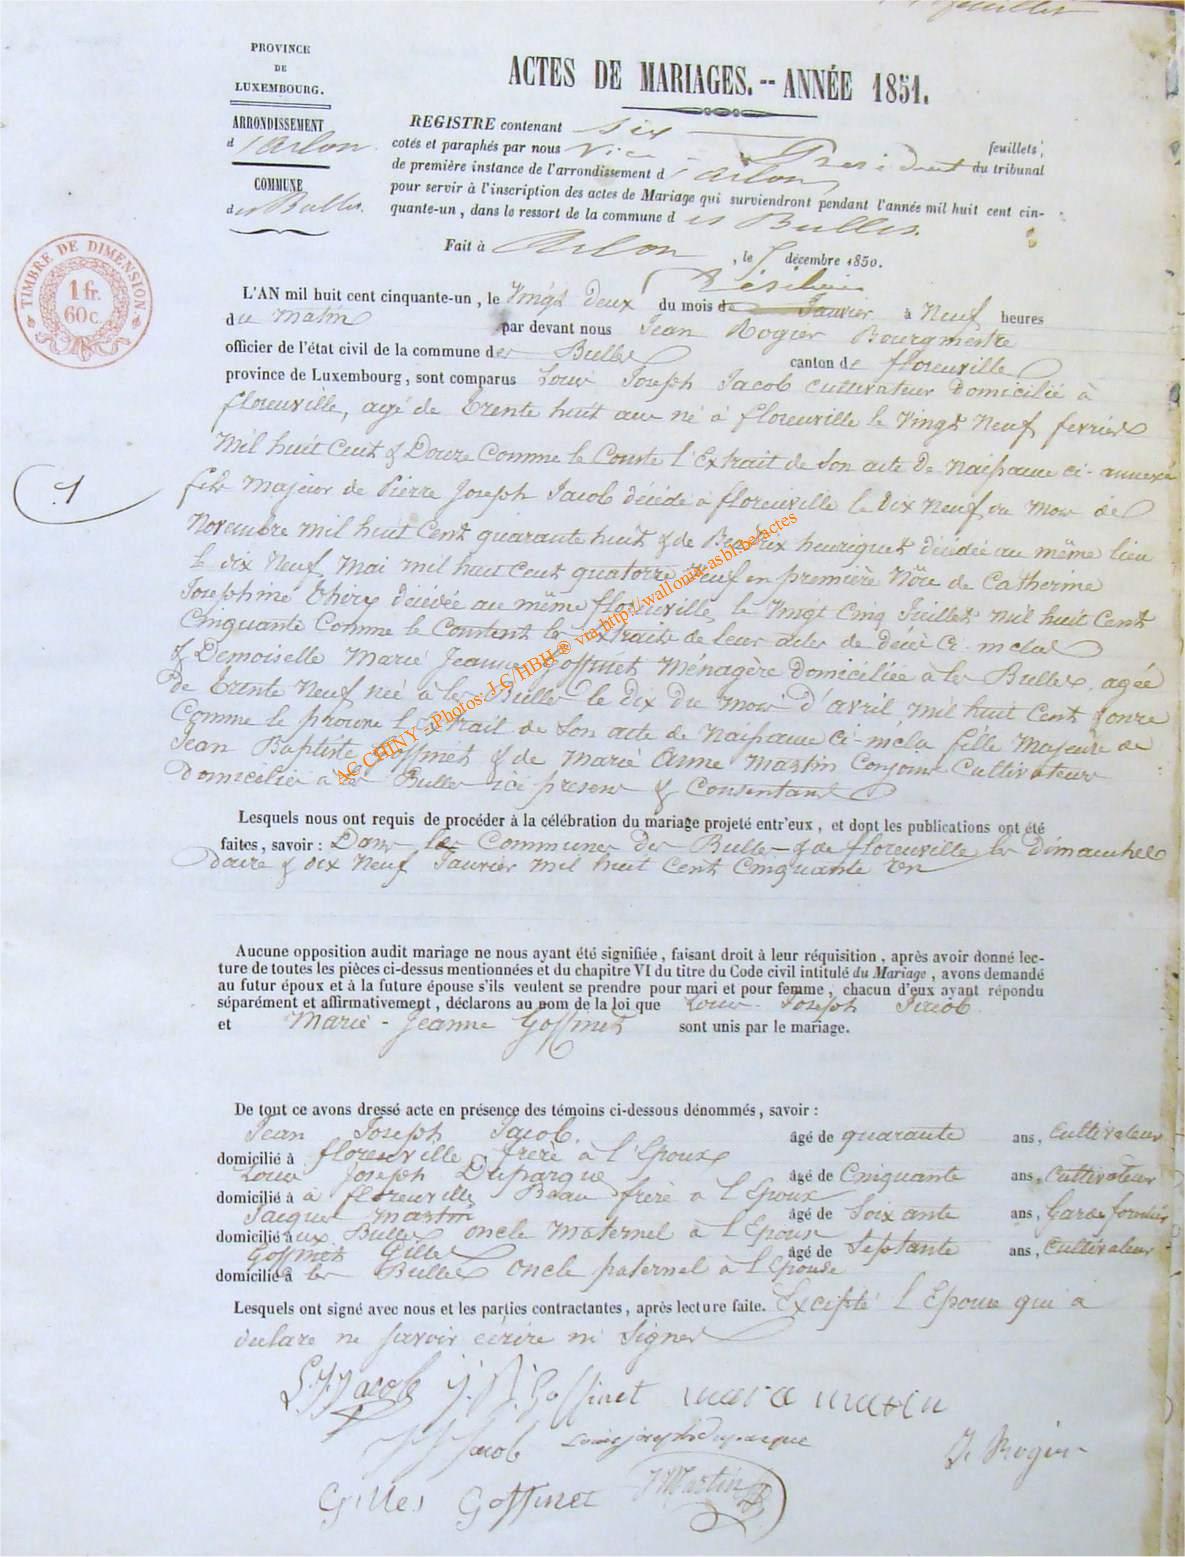 feuillet
PROVINCE
DE
LUXEMBOURG.
ARRONDISSEMENT
d'Arlon
COMMUNE
des Bulles.
ACTES DE MARIAGES. -- ANNÉE 1851.
REGISTRE contenant six feuillets,
cotés et paraphés par nous Vice Président du tribunal
de première instance de l'arrondissement d'Arlon,
pour servir à l'inscription des actes de Mariage qui surviendront pendant l'année mil huit cent cin-
quante-un, dans le ressort de la commune des Bulles
Fait à Arlon, le 7 décembre 1850.
TIMBRE DE DIMENSION
1 fr.
60 c.
L'AN mil huit cent cinquante-un, le Vingt deux du mois de Janvier à Neuf heures
du matin par devant nous Jean Rogier Bourgmestre
officier de l'état civil de la commune des Bulles canton de florenville
province de Luxembourg, sont comparus Louis Joseph Jacob cultivateur Domicilié à
florenville, agé de trente huit ans né à florenville le Vingt Neuf ferrier
Mil huit Cent & Douze Comme le Conste l'Extrait de Son acte de Naissance ci-annexé
1
fils Majeur de Pierre Joseph Jacob décédé à florenville le dix Neuf du Mois de
Novembre mil huit Cent quarante huit & de Beatrix henriquet décédée au même lieu
le dix Neuf Mai mil huit Cent quatorze Veuf en première Nôce de Catherine
Josephine Thiry décédée au même florenville, le Vingt Cinq Juillet mil huit Cent
Cinquante Comme le Constent les Extraits de leur actes de décès ci-inclus
& Demoiselle Marie Jeanne Goffinet Ménagère Domiciliée à les Bulles, agée
de trente Neuf née à les Bulles le dix du mois d'avril mil huit Cent & onze
Comme le prouve l'Extrait de Son acte de Naissance ci-inclu fille Majeure de
Jean Baptiste Goffinet & de Marie Anne Martin Conjoins Cultivateurs
Domicilié à les Bulles ici présens & Consentans
AC CHINY - Photos: J.C/HBH ® via http://wallonia-asbl.be/actes
Lesquels nous ont requis de procéder à la célébration du mariage projeté entr'eux, et dont les publications ont été
faites, savoir : Dans les Communes des Bulles & de florenville les Dimanches
douze & dix Neuf Janvier mil huit Cent Cinquante Un
Aucune opposition audit mariage ne nous ayant été signifiée, faisant droit à leur réquisition, après avoir donné lec-
ture de toutes les pièces ci-dessus mentionnées et du chapitre VI du titre du Code civil intitulé du Mariage, avons demandé
au futur époux et à la future épouse s'ils veulent se prendre pour mari et pour femme, chacun d'eux ayant répondu
séparément et affirmativement, déclarons au nom de la loi que Louis Joseph Jacob
et Marie-Jeanne Goffinet sont unis par le mariage.
De tout ce avons dressé acte en présence des témoins ci-dessous dénommés, savoir :
Jean Joseph Jacob. âgé de quarante ans, Cultivateur
domicilié à florenville frère à l'Epoux
Louis Joseph Duparque âgé de Cinquante ans, Cultivateur
domicilié à à florenville Beau frère à l'Epoux
Jacques Martin âgé de Soixante ans, Garde forestier
domicilié aux Bulles oncle maternel à l'Epouse
Goffinet Gilles âgé de Septante ans, Cultivateur
domicilié à les Bulles oncle paternel à l'Epouse
Lesquels ont signé avec nous et les parties contractantes, après lecture faite. Excepté l'Epouse qui a
déclare ne savoir ecrire ni Signer
L J Jacob J. B. Goffinet mara matin
J J Jacob Louis joseph Duparque J. Rogier
Gilles Goffinet J Martin